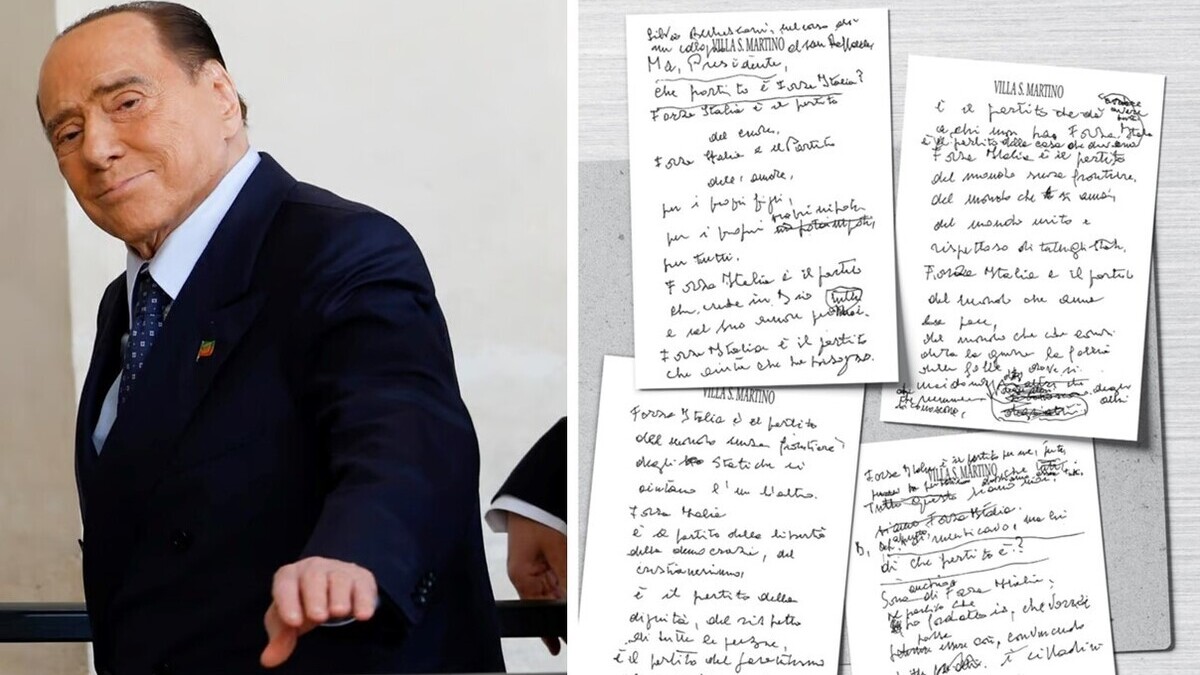 Silvio Berlusconi, nel corso di
un colloquio al San Raffaele,
VILLA S. MARTINO
Ma, Presidente,
che partito è Forza Italia?
Forza Italia è il partito
del cuore,
Forza Italia è il Partito
dell'amore,
per i propri figli,
per i propri nipoti
per tutti.
Forza Italia è il partito
che crede in Dio
e nel suo amore per
Forza Italia è il partito
che aiuta chi ha bisogno.
VILLA S. MARTINO
è il partito che dà
a chi non ha, Forza Italia
è il partito della casa che
Forza Italia è il partito
del mondo senza frontiere,
del mondo che si ama,
del mondo unito e
rispettoso di tutti gli Stati.
Forza Italia è il partito
del mondo che ama
la pace,
del mondo che
la guerra la follia
delle follie, dove si
VILLA S. MARTINO
Forza Italia è il partito
del mondo senza frontiere,
degli Stati che si
aiutano l'un l'altro.
Forza Italia
è il partito della libertà
della democrazia, del
cristianesimo,
è il partito della
dignità, del rispetto
di tutte le persone,
è il partito del garantismo
Forza Italia è il partito per me,
VILLA S. MARTINO
Tutto questo siamo noi,
siamo Forza Italia.
dimenticavo, ma lei
di che partito è?
Sono di Forza Italia,
il partito che
ho fondato io, che vorrei
potesse
essere così, convincendo